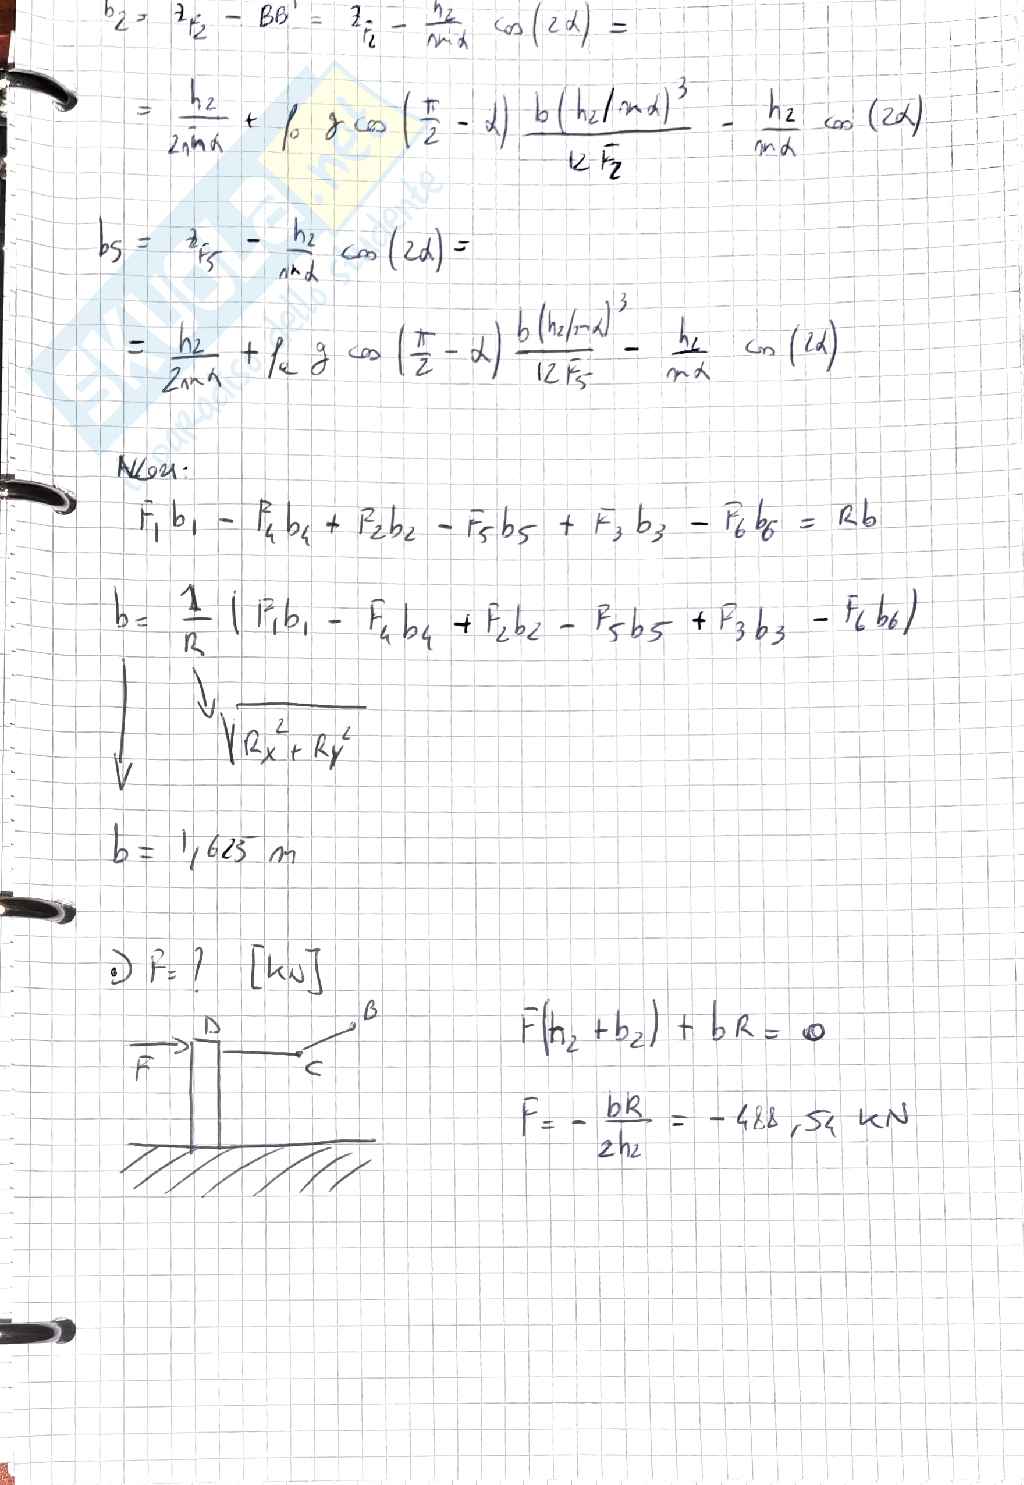 b₂ = z_F₂ - BB' = z_F₂ - h₂/sinα cos(2α) =
= h₂/2sinα + ρ₀ g cos(π/2 - α) b(h₂/sinα)³/12 F₂ - h₂/sinα cos(2α)
b₅ = z_F₅ - h₂/sinα cos(2α) =
= h₂/2sinα + ρₐ g cos(π/2 - α) b(h₂/sinα)³/12 F₅ - h₂/sinα cos(2α)
Allora:
F₁b₁ - F₄b₄ + F₂b₂ - F₅b₅ + F₃b₃ - F₆b₆ = Rb
b = 1/R (F₁b₁ - F₄b₄ + F₂b₂ - F₅b₅ + F₃b₃ - F₆b₆)
√(Rx² + Ry²)
b = 1,625 m
•) F = ? [kN]
D
B
F
C
F(h₂ + b₂) + bR = 0
F = - bR/2h₂ = - 488,54 kN
SKUOLA.net
il paradiso dello studente